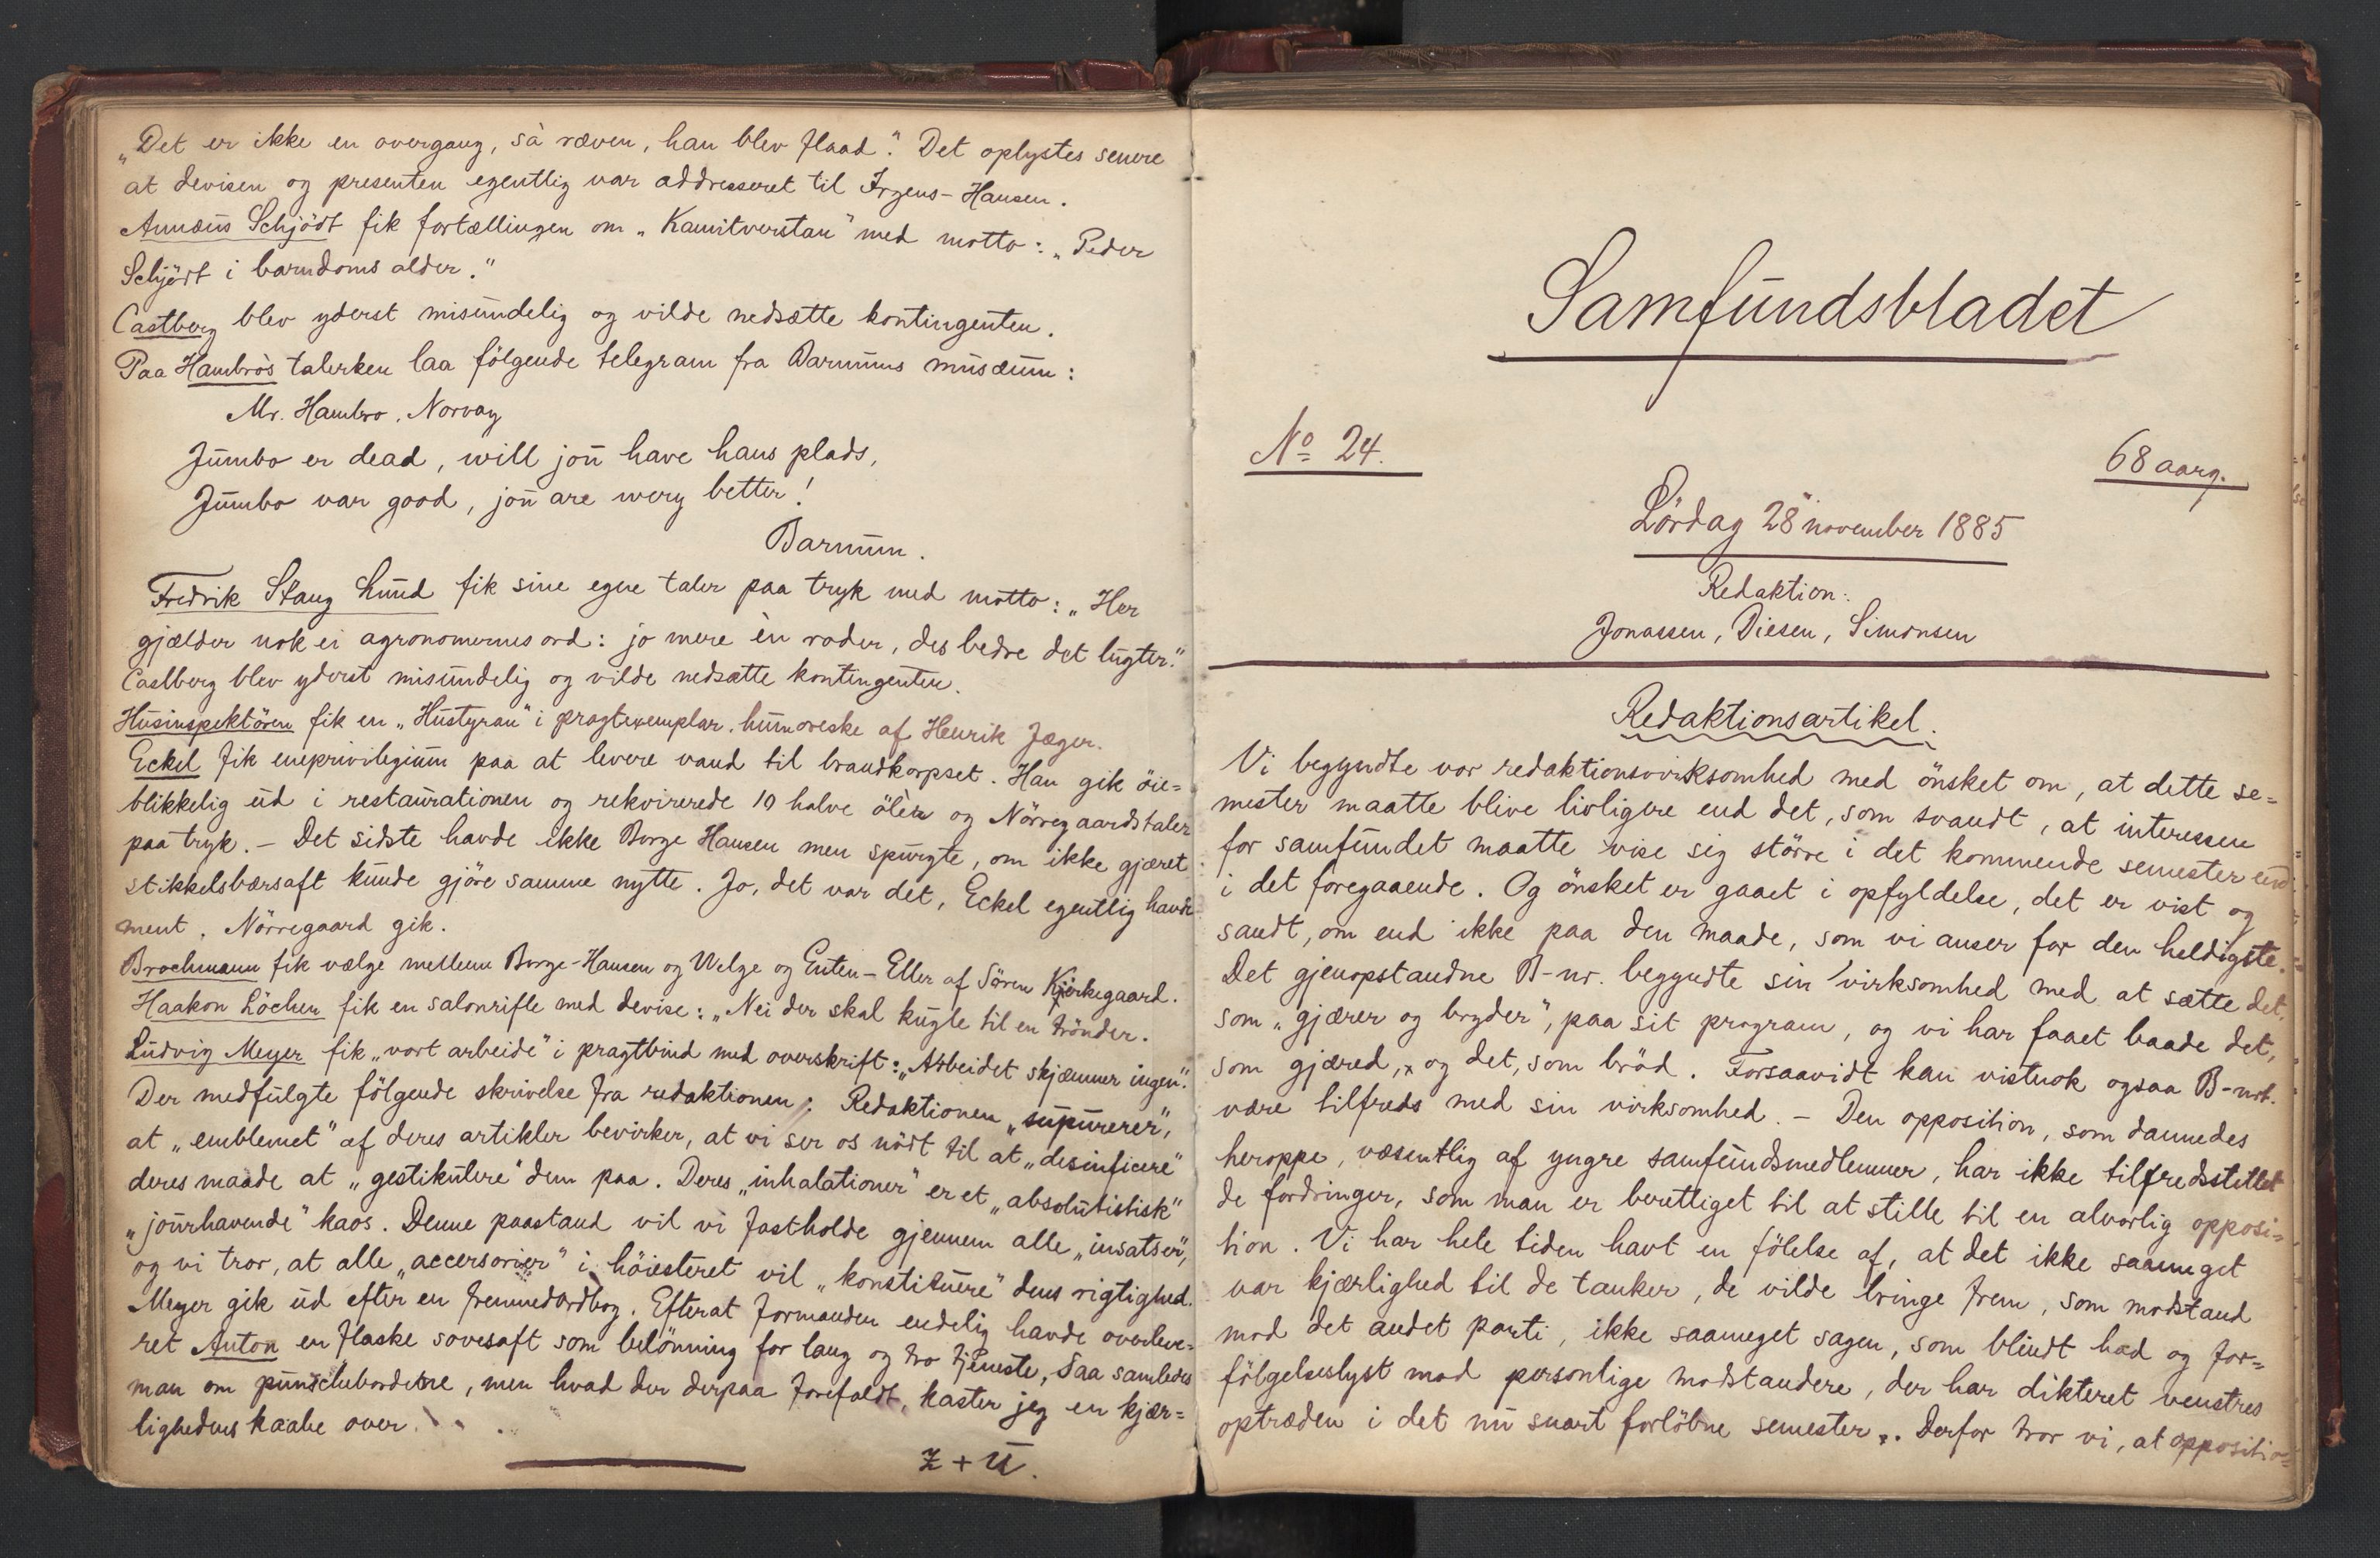 „Det er ikke en overgang, sà ræven, han blev flaad.“ Det oplystes senere
at devisen og presenten egentlig var addresseret til Irgens-Hansen.
Annæus Schjödt fik fortællingen om „Kamitverstan“ med motto: „Peder
Schjödt i barndoms alder.“
Castberg blev yderst misundelig og vilde nedsætte kontingenten.
Paa Hambro's talerken laa fölgende telegram fra Barnums musæum:
Mr. Hambro, Norvay
Jumbo er dead, will jou have hans plads,
Jumbo var good, jou are wery better!
Barnum.
Fredrik Stang Lund fik sine egne taler paa tryk med motto: „Her
gjælder nok ei agronomernes ord: jo mere èn roder, des bedre det lugter.“
Castberg blev yderst misundelig og vilde nedsætte kontingenten.
Husinspektören fik en „Hustyran“ i pragtexemplar. humoreske af Henrik Jæger.
Eckel fik eneprivilegium paa at levere vand til brandkorpset. Han gik öie=
blikkelig ud i restaurationen og rekvirerede 10 halve öl èr og Nörregaards taler
paa tryk. – Det sidste havde ikke Borge Hansen men spurgte, om ikke gjæret
stikkelsbærsaft kunde gjöre samme nytte. Jo, det var det, Eckel egentlig havde
ment. Nörregaard gik.
Brochmann fik vælge mellem Borge-Hansen og Welge og Enten-Eller af Sören Kjerkegaard.
Haakon Löchen fik en salonrifle med devise: „Nei der skal kugle til en trönder.
Ludvig Meyer fik „vort arbeide“ i pragtbind med overskrift: „Arbeidet skjæmmer ingen“.
Der medfulgte fölgende skrivelse fra redaktionen: Redaktionen „supurerer“,
at „emblemet“ af deres artikler bevirker, at vi ser os nödt til at „desinficere“
deres maade at „gestikulere“ dem paa. Deres „inhalationer“ er et „absolutistisk“
„jourhavende“ kaos. Denne paastand vil vi fastholde gjennem alle „insatser“,
og vi tror, at alle „accersorier“ i höiesteret vil „konstituere“ dens rigtighed.
Meyer gik ud efter en fremmedordbog. Efterat formanden endelig havde overleve=
ret Anton en flaske sovesaft som belönning for lang og tro tjeneste, saa samledes
man om punschebordene, men hvad der derpaa forefaldt, kaster jeg en kjær=
lighedens kaabe over.
Z + U.
Samfundsbladet
No 24.
68 aarg.
Lördag 28 november 1885
Redaktion:
Jonassen, Diesen, Simonsen
Redaktionsartikel.
Vi begyndte vor redaktionsvirksomhed med önsket om, at dette se=
mester maatte blive livligere end det, som svandt, at interessen
for samfundet maatte vise sig större i det kommende semester end
i det foregaaende. Og önsket er gaaet i opfyldelse, det er vist og
sandt, om end ikke paa den maade, som vi anser for den heldigste.
Det gjenopstandne B-nr. begyndte sin virksomhed med at sætte det,
som „gjærer og bryder“, paa sit program, og vi har faaet baade det,
som gjæred, og det, som bröd. Forsaavidt kan vistnok ogsaa B-nrt.
være tilfreds med sin virksomhed. – Den opposition, som dannedes
heroppe, væsentlig af yngre samfundsmedlemmer, har ikke tilfredsstillet
de fordringer, som man er berettiget til at stille til en alvorlig opposi=
tion. Vi har hele tiden havt en fölelse af, at det ikke saameget
var kjærlighed til de tanker, de vilde bringe frem, som modstand
mod det andet parti, ikke saameget sagen, som blindt had og for=
fölgelseslyst mod personlige modstandere, der har dikteret venstres
optræden i det nu snart forlöbne semester. Derfor tror vi, at oppositio=